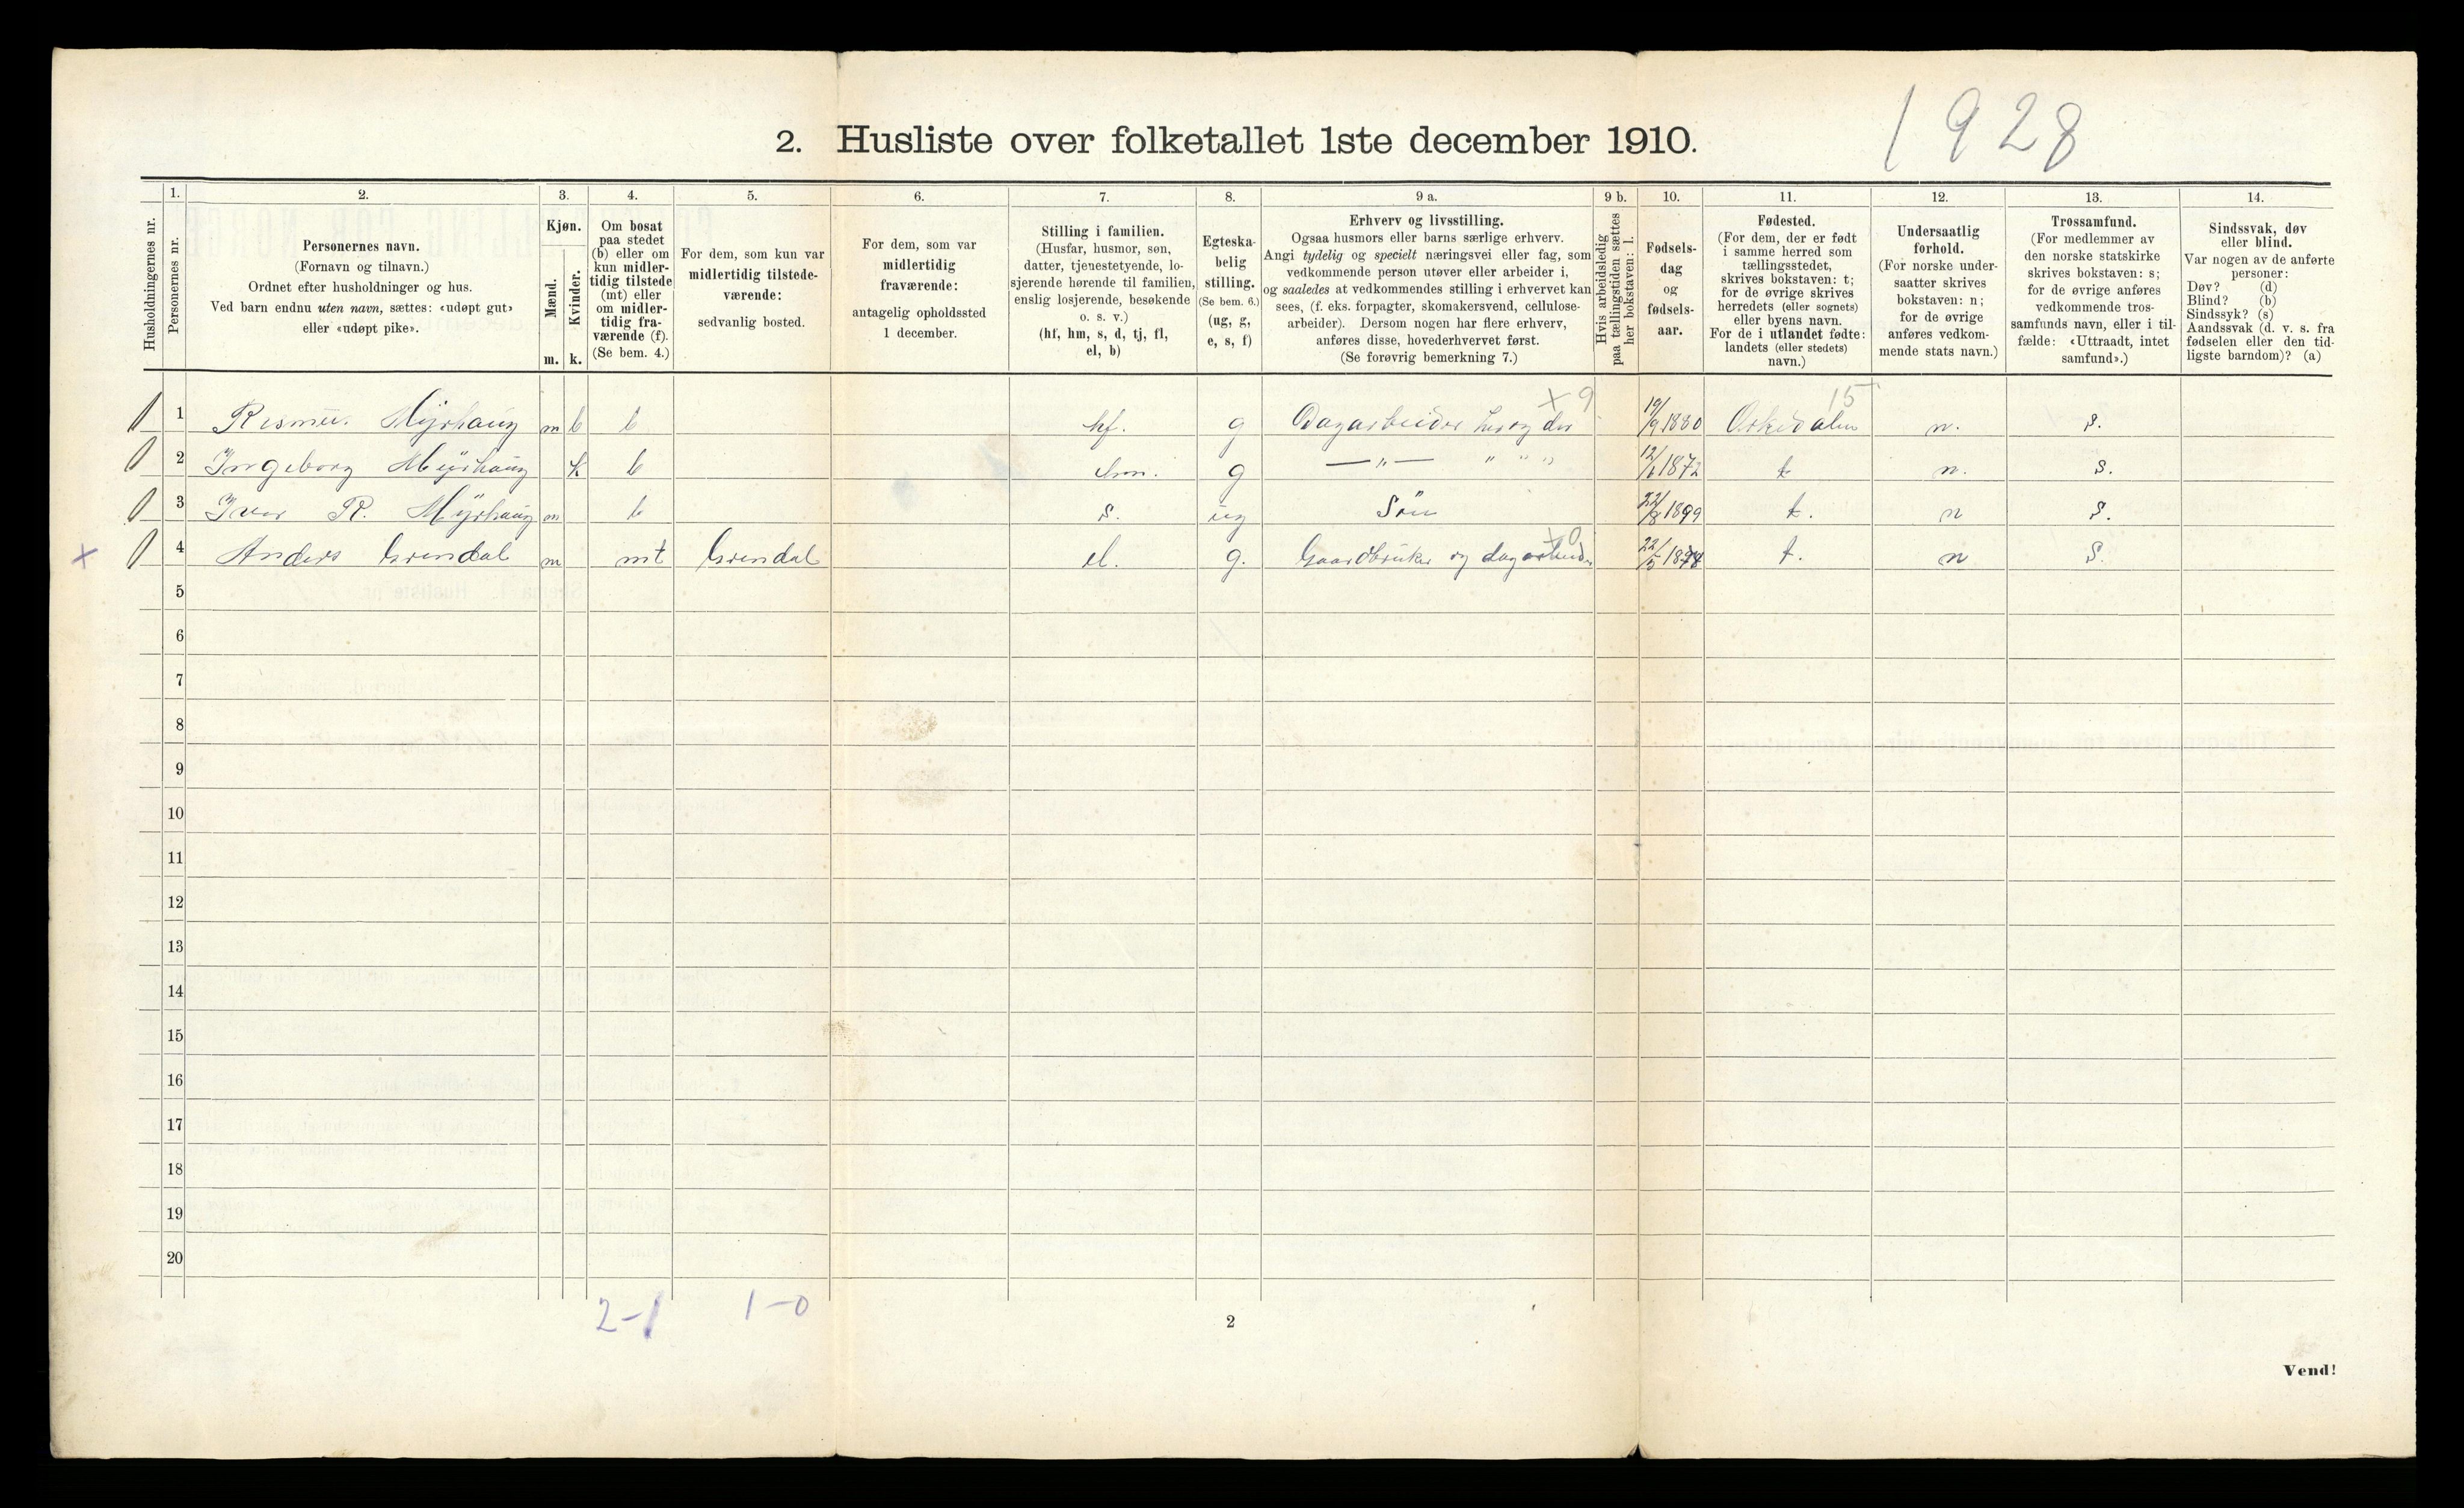 1928
2. Husliste over folketallet 1ste december 1910.
Husholdningernes nr.
1.
Personernes nr.
2.
Personernes navn.
(Fornavn og tilnavn.)
Ordnet efter husholdninger og hus.
Ved barn endnu uten navn, sættes: «udøpt gut»
eller «udøpt pike».
3.
Kjøn.
Mænd.
m.
Kvinder.
k.
4.
Om bosat
paa stedet
(b) eller om
kun midler-
tidig tilstede
(mt) eller
om midler-
tidig fra-
værende (f).
(Se bem. 4.)
5.
For dem, som kun var
midlertidig tilstede-
værende:
sedvanlig bosted.
6.
For dem, som var
midlertidig
fraværende:
antagelig opholdssted
1 december.
7.
Stilling i familien.
(Husfar, husmor, søn,
datter, tjenestetyende, lo-
sjerende hørende til familien,
enslig losjerende, besøkende
o. s. v.)
(hf, hm, s, d, tj, fl,
el, b)
8.
Egteska-
belig
stilling.
(Se bem. 6.)
(ug, g,
e, s, f)
9 a.
Erhverv og livsstilling.
Ogsaa husmors eller barns særlige erhverv.
Angi tydelig og specielt næringsvei eller fag, som
vedkommende person utøver eller arbeider i,
og saaledes at vedkommendes stilling i erhvervet kan
sees, (f. eks. forpagter, skomakersvend, cellulose-
arbeider). Dersom nogen har flere erhverv,
anføres disse, hovederhvervet først.
(Se forøvrig bemerkning 7.)
9 b.
Hvis arbeidsledig
paa tællingstiden sættes
her bokstaven: l.
10.
Fødsels-
dag
og
fødsels-
aar.
11.
Fødested.
(For dem, der er født
i samme herred som
tællingsstedet,
skrives bokstaven: t;
for de øvrige skrives
herredets (eller sognets)
eller byens navn.
For de i utlandet fødte:
landets (eller stedets)
navn.)
12.
Undersaatlig
forhold.
(For norske under-
saatter skrives
bokstaven: n;
for de øvrige
anføres vedkom-
mende stats navn.)
13.
Trossamfund.
(For medlemmer av
den norske statskirke
skrives bokstaven: s;
for de øvrige anføres
vedkommende tros-
samfunds navn, eller i til-
fælde: «Uttraadt, intet
samfund».)
14.
Sindssvak, døv
eller blind.
Var nogen av de anførte
personer:
Døv? (d)
Blind? (b)
Sindssyk? (s)
Aandssvak (d. v. s. fra
fødselen eller den tid-
ligste barndom)? (a)
x 9 15
1 Myrhaug m b b hf. g Dagarbeider 19/9 1880 Orkedalen n. s.
2 Ingeborg Myrhaug k b hm. g —"— " " " 12/6 1872 t n. s.
3 Iver R. Myrhaug m b s. ug Søn 22/8 1899 t. n s.
x0
x 4 Anders Grendal m mt Grendal el. g. Gaardbruker og dagarbeider 22/5 t. n s.
5
6
7
8
9
10
11
12
13
14
15
16
17
18
19
20
2-1 1-0
2
Vend!